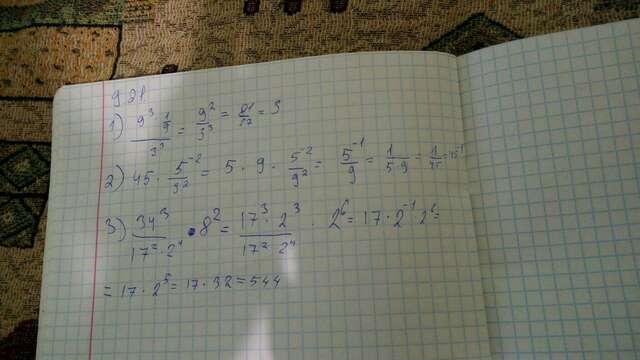 921
1) 9³ 1/9 / 3³ = 9²/3³ = 81/27 = 3
2) 45 · 5⁻²/9² = 5 · 9 · 5⁻²/9² = 5⁻¹/9 = 1/5·9 = 1/45 = 45⁻¹
3) 34³/17²·2⁴ · 8² = 17³·2³/17²·2⁴ · 2⁶ = 17 · 2⁻¹ 2⁶ =
= 17 · 2⁵ = 17 · 32 = 544